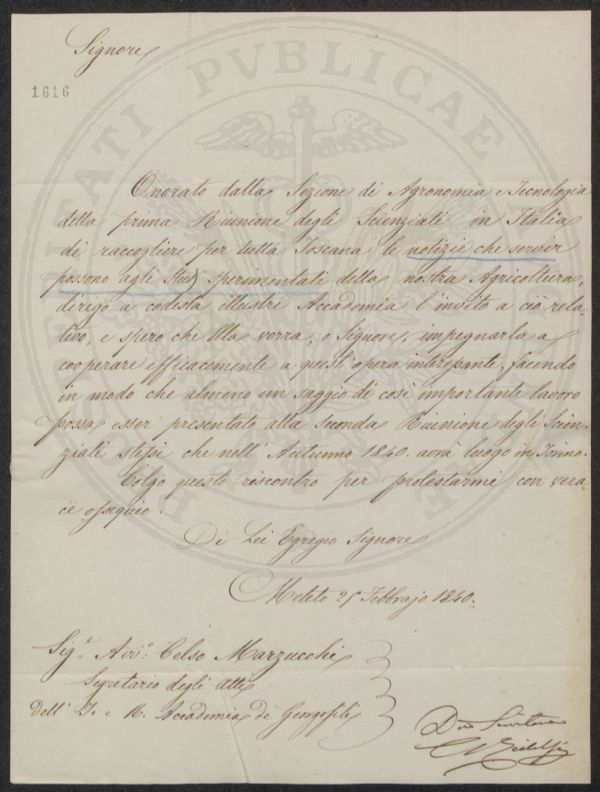 Signore
1616
Onorato dalla Sezione di Agronomia e Tecnologia
della prima Riunione degli Scienziati in Italia
di raccogliere per tutta Toscana le notizie che servir
possono agli Studj sperimentati della nostra Agricoltura,
dirigo a codesta illustre Accademia l'invito a ciò rela-
tivo, e spero che Ella vorrà, o Signore, impegnarla a
cooperare efficacemente a quest'opera interessante, facendo
in modo che almeno un saggio di così importante lavoro
possa esser presentato alla seconda Riunione degli Scien-
ziati stessi che nell'Autunno 1840. avrà luogo in Torino.
Colgo questo riscontro per protestarmi con vera-
ce ossequio.
Di Lei Egregio Signore
Meleto 25 Febbrajo 1840.
Sigr. Avvo. Celso Marzucchi
Segretario degli Atti
dell' I. e R. Accademia de' Georgofili
Dmo Servitore
C Ridolfi